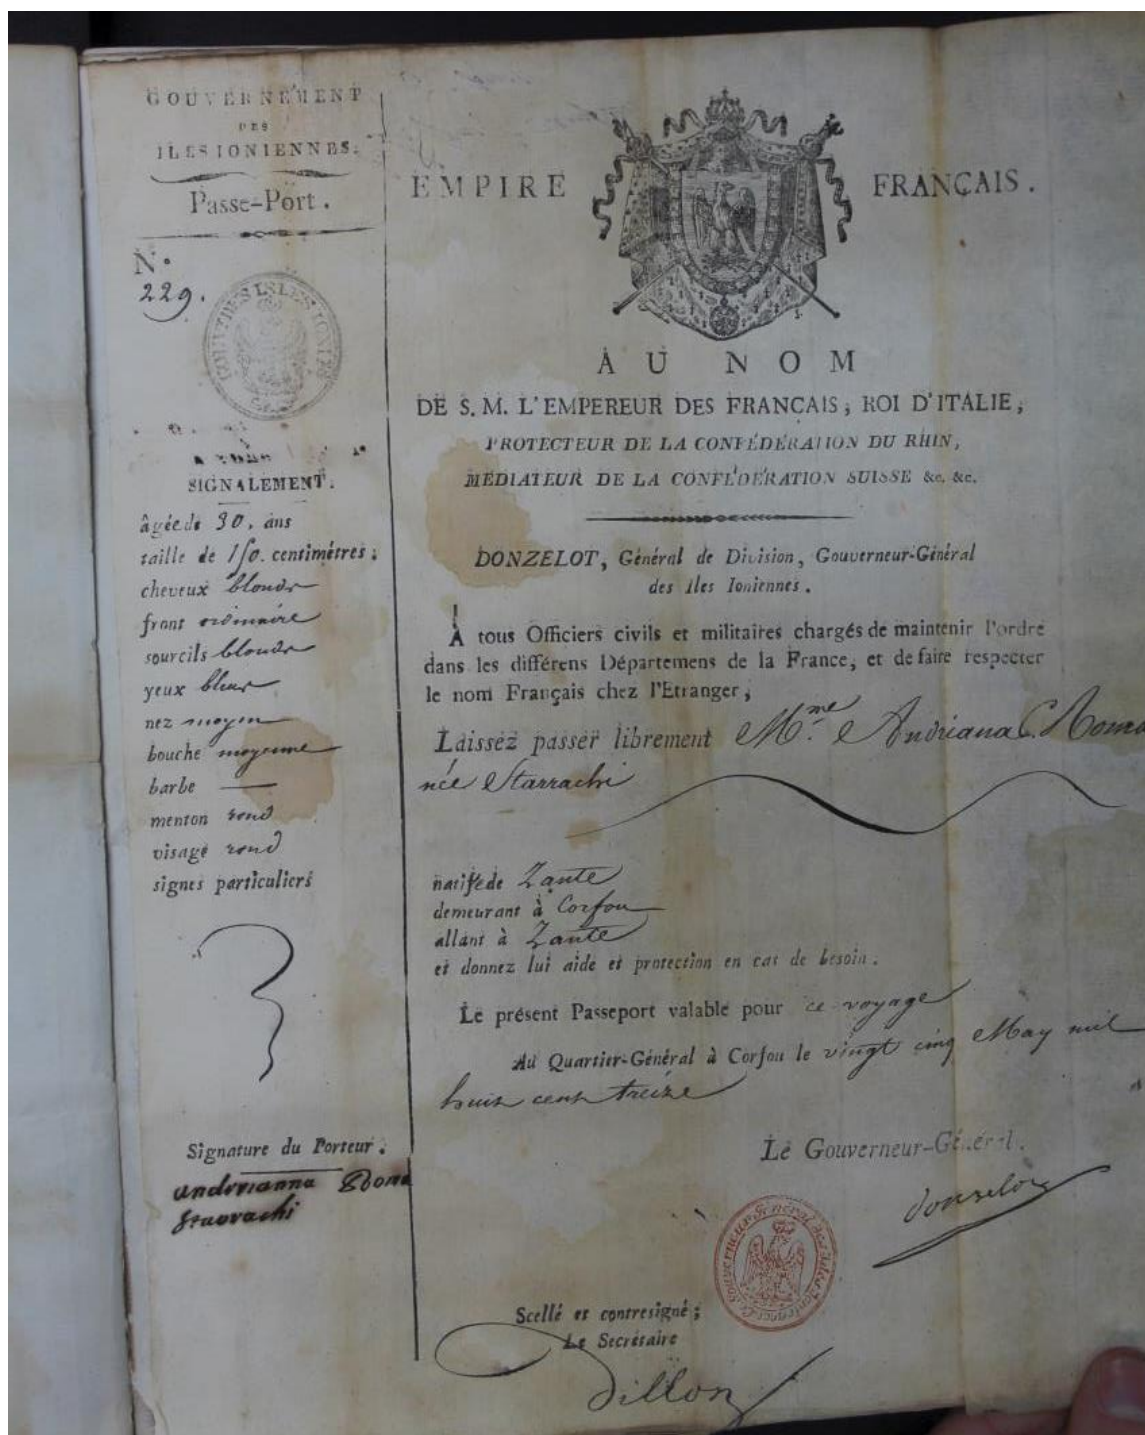 GOUVERNEMENT
DES
ILES IONIENNES.
Passe-Port.
N.°
229.
SIGNALEMENT.
âgée de 30, ans
taille de 150. centimètres;
cheveux blonds
front ordinaire
sourcils blonds
yeux bleus
nez moyen
bouche moyenne
barbe —
menton rond
visage rond
signes particuliers
Signature du Porteur.
andrianna Roma
Stavrachi
EMPIRE FRANÇAIS.
AU NOM
DE S. M. L'EMPEREUR DES FRANÇAIS, ROI D'ITALIE,
PROTECTEUR DE LA CONFÉDÉRATION DU RHIN,
MÉDIATEUR DE LA CONFÉDÉRATION SUISSE &c. &c.
DONZELOT, Général de Division, Gouverneur-Général
des Iles Ioniennes.
À tous Officiers civils et militaires chargés de maintenir l'ordre
dans les différens Départemens de la France, et de faire respecter
le nom Français chez l'Etranger;
Laissez passer librement M.me Andriana C. Roma
née Starrachi
natif de Zante
demeurant à Corfou
allant à Zante
et donnez lui aide et protection en cas de besoin.
Le présent Passeport valable pour ce voyage
Au Quartier-Général à Corfou le vingt cinq May mil
huit cent treize
Le Gouverneur-Général.
Donzelot
Scellé et contresigné;
Le Secrétaire
Dillon